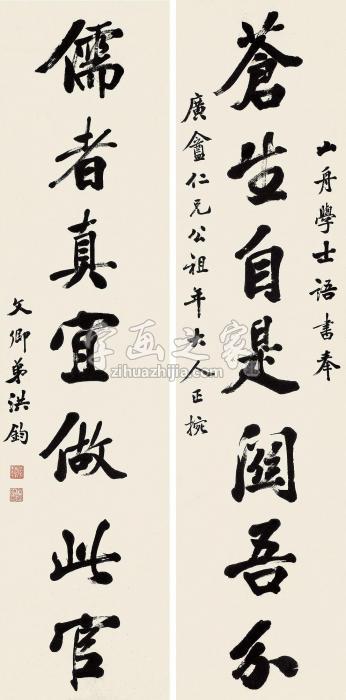 山舟學士語書奉
蒼生自是闗吾分
廣盦仁兄公祖年大人正捥
儒者真宜做此官
文卿弟洪鈞
字画之家
zihuazhijia.com